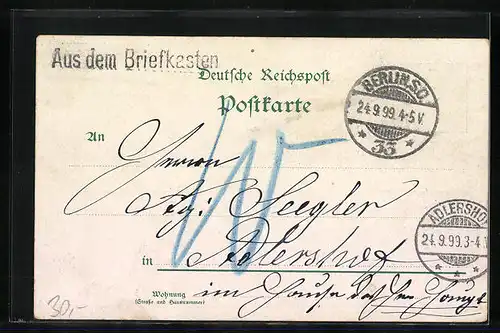 Aus dem Briefkasten
Deutsche Reichspost
Postkarte
BERLIN.S.O.
24.9.99.4-5V.
* 33 *
An
Herrn
Seegler
ADLERSHOF
24.9.99.3-4
* * *
in Adlershof
Wohnung
(Straße und Hausnummer)
im Hause
30,-